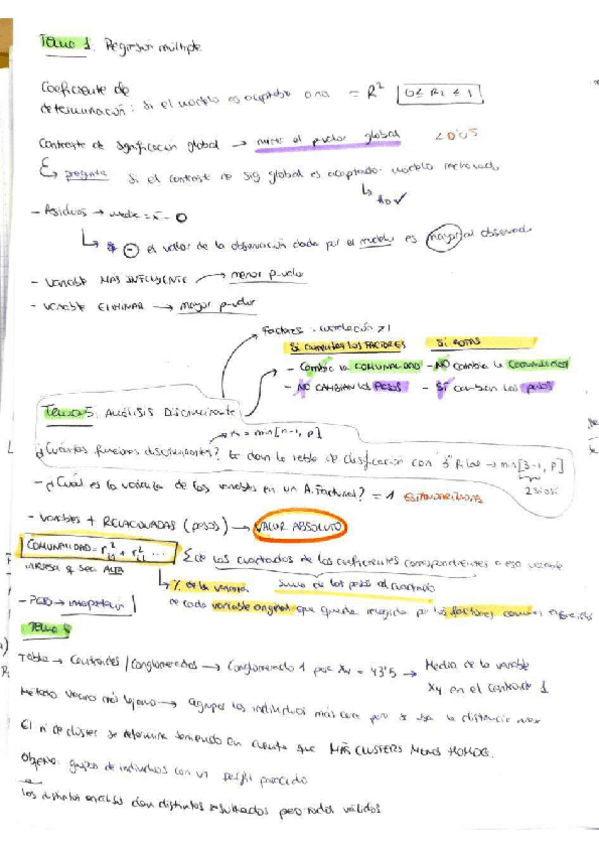 Tema 1. Regresión múltiple
Coeficiente de
determinación: si el modelo es aceptable o no = R² 0 ≤ R2 ≤ 1
Contraste de significación global → mirar el p-valor global <0'05
pregunta si el contraste de sig global es aceptado modelo
no ✓
- Residuos → media = 0
⊖ el valor de la observación dada por el modelo es mayor al observado
- Variable MÁS INFLUYENTE → menor p-valor
- Variable ELIMINAR → mayor p-valor
Factores - correlación >1
Si aumentan los FACTORES Si ROTAS
- Cambia la COMUNALIDAD - NO cambia la comunalidad
- NO CAMBIAN los PESOS - SI cambian los pesos
Tema 5. Análisis Discriminante
= min[n-1, p]
¿Cuántas funciones discriminantes? te dan la tabla de clasificación con 3 filas → min[3-1, p]
- ¿Cuál es la varianza de las variables en un A. Factorial? = 1
- Variables + RELACIONADAS (pesos) → VALOR ABSOLUTO
COMUNALIDAD = r² + r² ... Σ de los cuadrados de los coeficientes correspondientes a esa variable
interesa q sea ALTA
% de la varianza suma de los pesos al cuadrado
de cada variable original que queda recogida por los factores comunes
Tema
Tabla → Centroides / Conglomerados → Conglomerado 1 para X4 = 43'5 → Media de la variable
X4 en el centroide 1
Método vecino más lejano → agrupa los individuos más cerca pero se usa la distancia max
El nº de cluster se determina teniendo en cuenta que MÁS CLUSTERS MENOS HOMOG.
Objetivo: grupos de individuos con un perfil parecido
los distintos análisis dan distintos resultados pero todos válidos